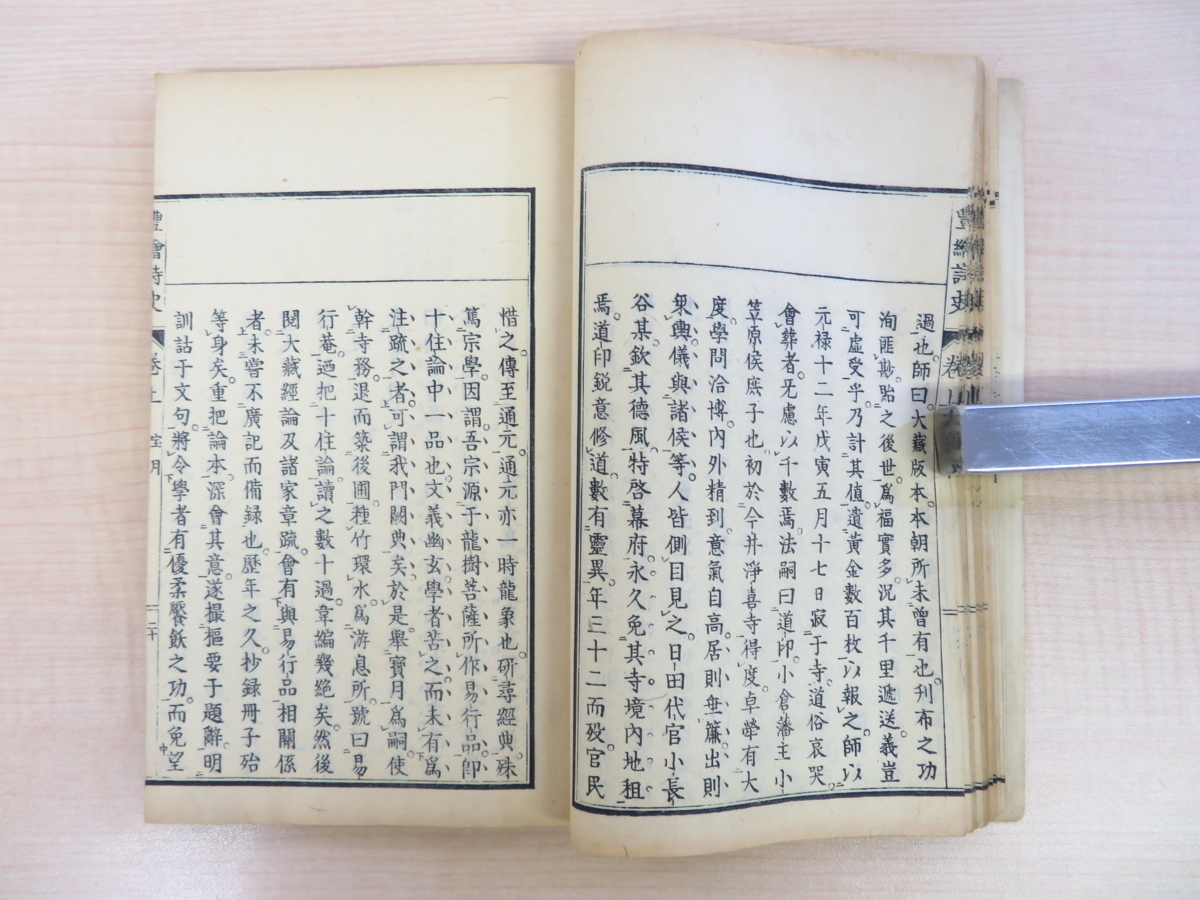 過也。師曰。大藏版本。本朝所未曾有也。刊布之功
洵匪尠。貽之後世。爲福實多。況其千里遞送。義豈
可虛受乎。乃計其值。遺黃金數百枚以報之。師以
元禄十二年戊寅五月十七日寂于寺。道俗哀哭。
會葬者。无慮以千數焉。法嗣曰道印。小倉藩主小
笠原侯庶子也。初於今井淨喜寺得度。卓犖有大
度。學問洽博。內外精到。意氣自高。居則垂簾。出則
乗輿。儀與諸侯等。人皆側目見之。日田代官小長
谷某。欽其德風。特啓幕府。永久免其寺境內地租
焉。道印鋭意修道。數有靈異。年三十二而歿。官民
惜之。傳至通元。通元亦一時龍象也。研尋經典。殊
篤宗學。因謂。吾宗源于龍樹菩薩所作易行品。即
十住論中一品也。文義幽玄。學者苦之。而未有爲
注疏之者。可謂我門闕典矣。於是。舉寶月爲嗣。使
幹寺務。退而築後圃。種竹環水。爲游息所。號曰易
行菴。迺把十住論。讀之數十過。韋編幾絕矣。然後
閱大藏經論及諸家章疏。會有與易行品相關係
者。未嘗不廣記而備録也。歷年之久。抄録冊子殆
等身矣。重把論本。深會其意。遂撮樞要于題辭。明
訓詁于文句。將令學者有優柔饜飫之功。而免望
豐繪詩史
卷上